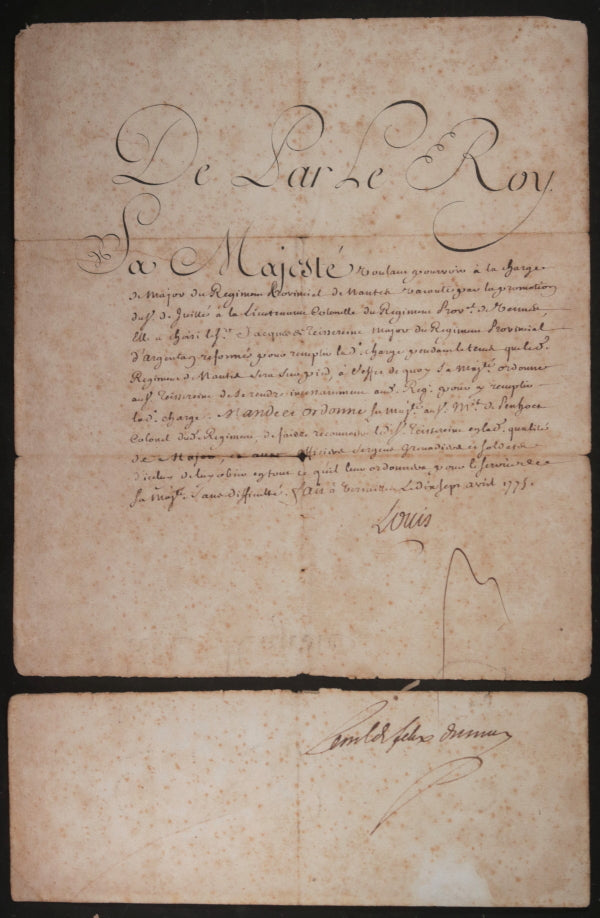 De Par Le Roy
Sa Majesté voulant pourvoir à la charge
de Major du Regiment Provincial de Nantes vacante par la promotion
du Sr. de à la Lieutenance Colonelle du Regiment Prov.al de
Elle a choisi le Sr. Jacques Major du Regiment Provincial
d'Argentan reformés pour remplir la de. charge pendant le tems que le d.
Regiment de Nantes sera sur pied, à l'effet de quoy Sa Maj.té ordonne
au S. de se rendre incessamment aud. Reg.t pour y remplir
la de. charge. Mande et ordonne Sa Maj.té au S. M.is de Penhoet
Colonel dud. Regiment de faire reconnoitre led. S. en lad. qualité
de Major, et aux Officiers Sergens Grenadiers et Soldats
d'iceluy de luy obeir en tout ce qu'il leur ordonnera pour le service de
Sa Maj.té sans difficulté. Fait à Versailles Le dix sept avril 1775.
Louis
felix Dumuy